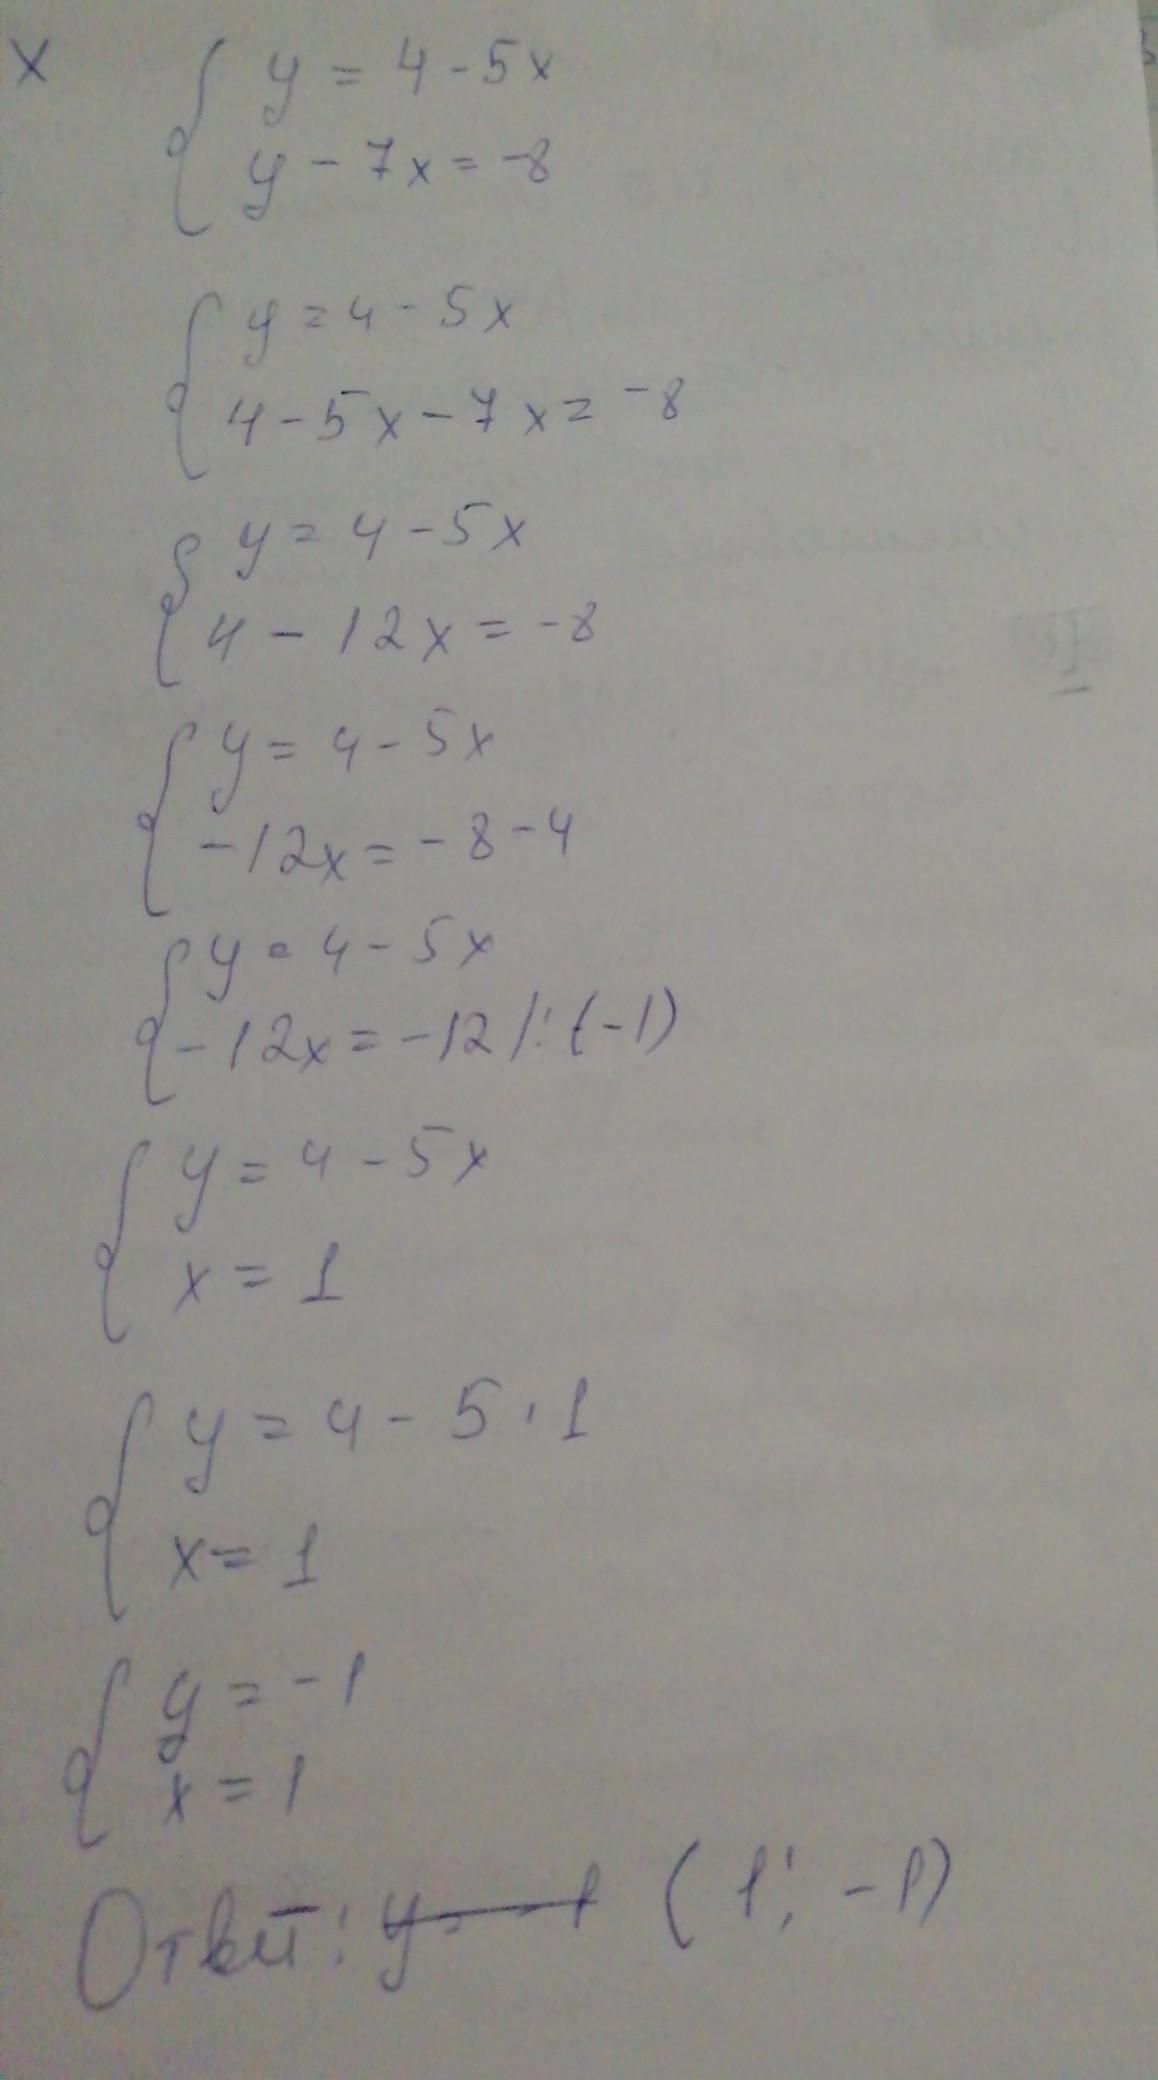 x
y = 4 - 5x
y - 7x = -8
y = 4 - 5x
4 - 5x - 7x = -8
y = 4 - 5x
4 - 12x = -8
y = 4 - 5x
-12x = -8 - 4
y = 4 - 5x
-12x = -12 |:(-1)
y = 4 - 5x
x = 1
y = 4 - 5 · 1
x = 1
y = -1
x = 1
Ответ: (1; -1)